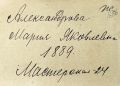 Александрова
Мария Яковлевна
1889
Мастерская